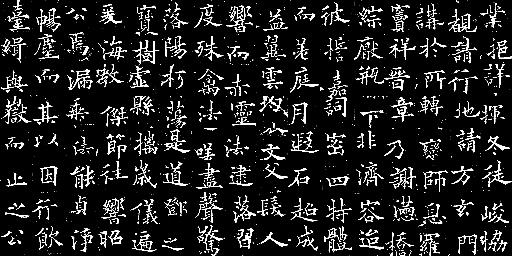 業挹詳揮冬徒峻惱
覩請行地請方玄門
講於所轉師息羅
祥晉章乃謝橋
綜厥瓶下非濟容迨
彼嘉詞密四特體
而庭月遐石超成
益雲以文父人
響而赤靈法逮落習
度殊禽法盡聲驚
落陽朽蕩是道鄧之
寶樹虛縣攜歲儀遍
爰海敎傑節往響昭
公焉漏乘法能貞淨
暢塵而其以因行飲
臺綺與嶽而止之公